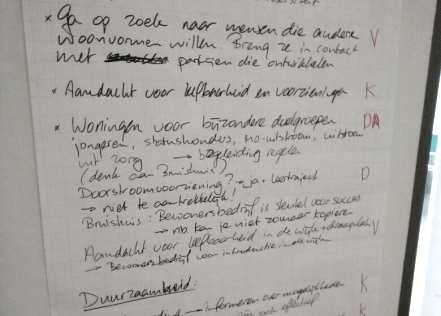 × Ga op zoek naar mensen die andere
woonvormen willen. Breng ze in contact V
met partijen die ontwikkelen
× Aandacht voor leefbaarheid en voorzieningen K
× Woningen voor bijzondere doelgroepen DA
jongeren, statushouders, MO-uitstroom, uitstroom
uit zorg → begeleiding regelen
(denk aan Bruishuis)
Doorstroomvoorziening? → ja + leertraject D
→ niet te aantrekkelijk!
Bruishuis: Bewonersbedrijf is sleutel voor succes
→ nb kan je niet zomaar kopiëren
Aandacht voor leefbaarheid in de wijk + draagvlak V
→ Bewonersbedrijf voor introductie in de wijk
Duurzaamheid:
→ informeren over mogelijkheden K
K